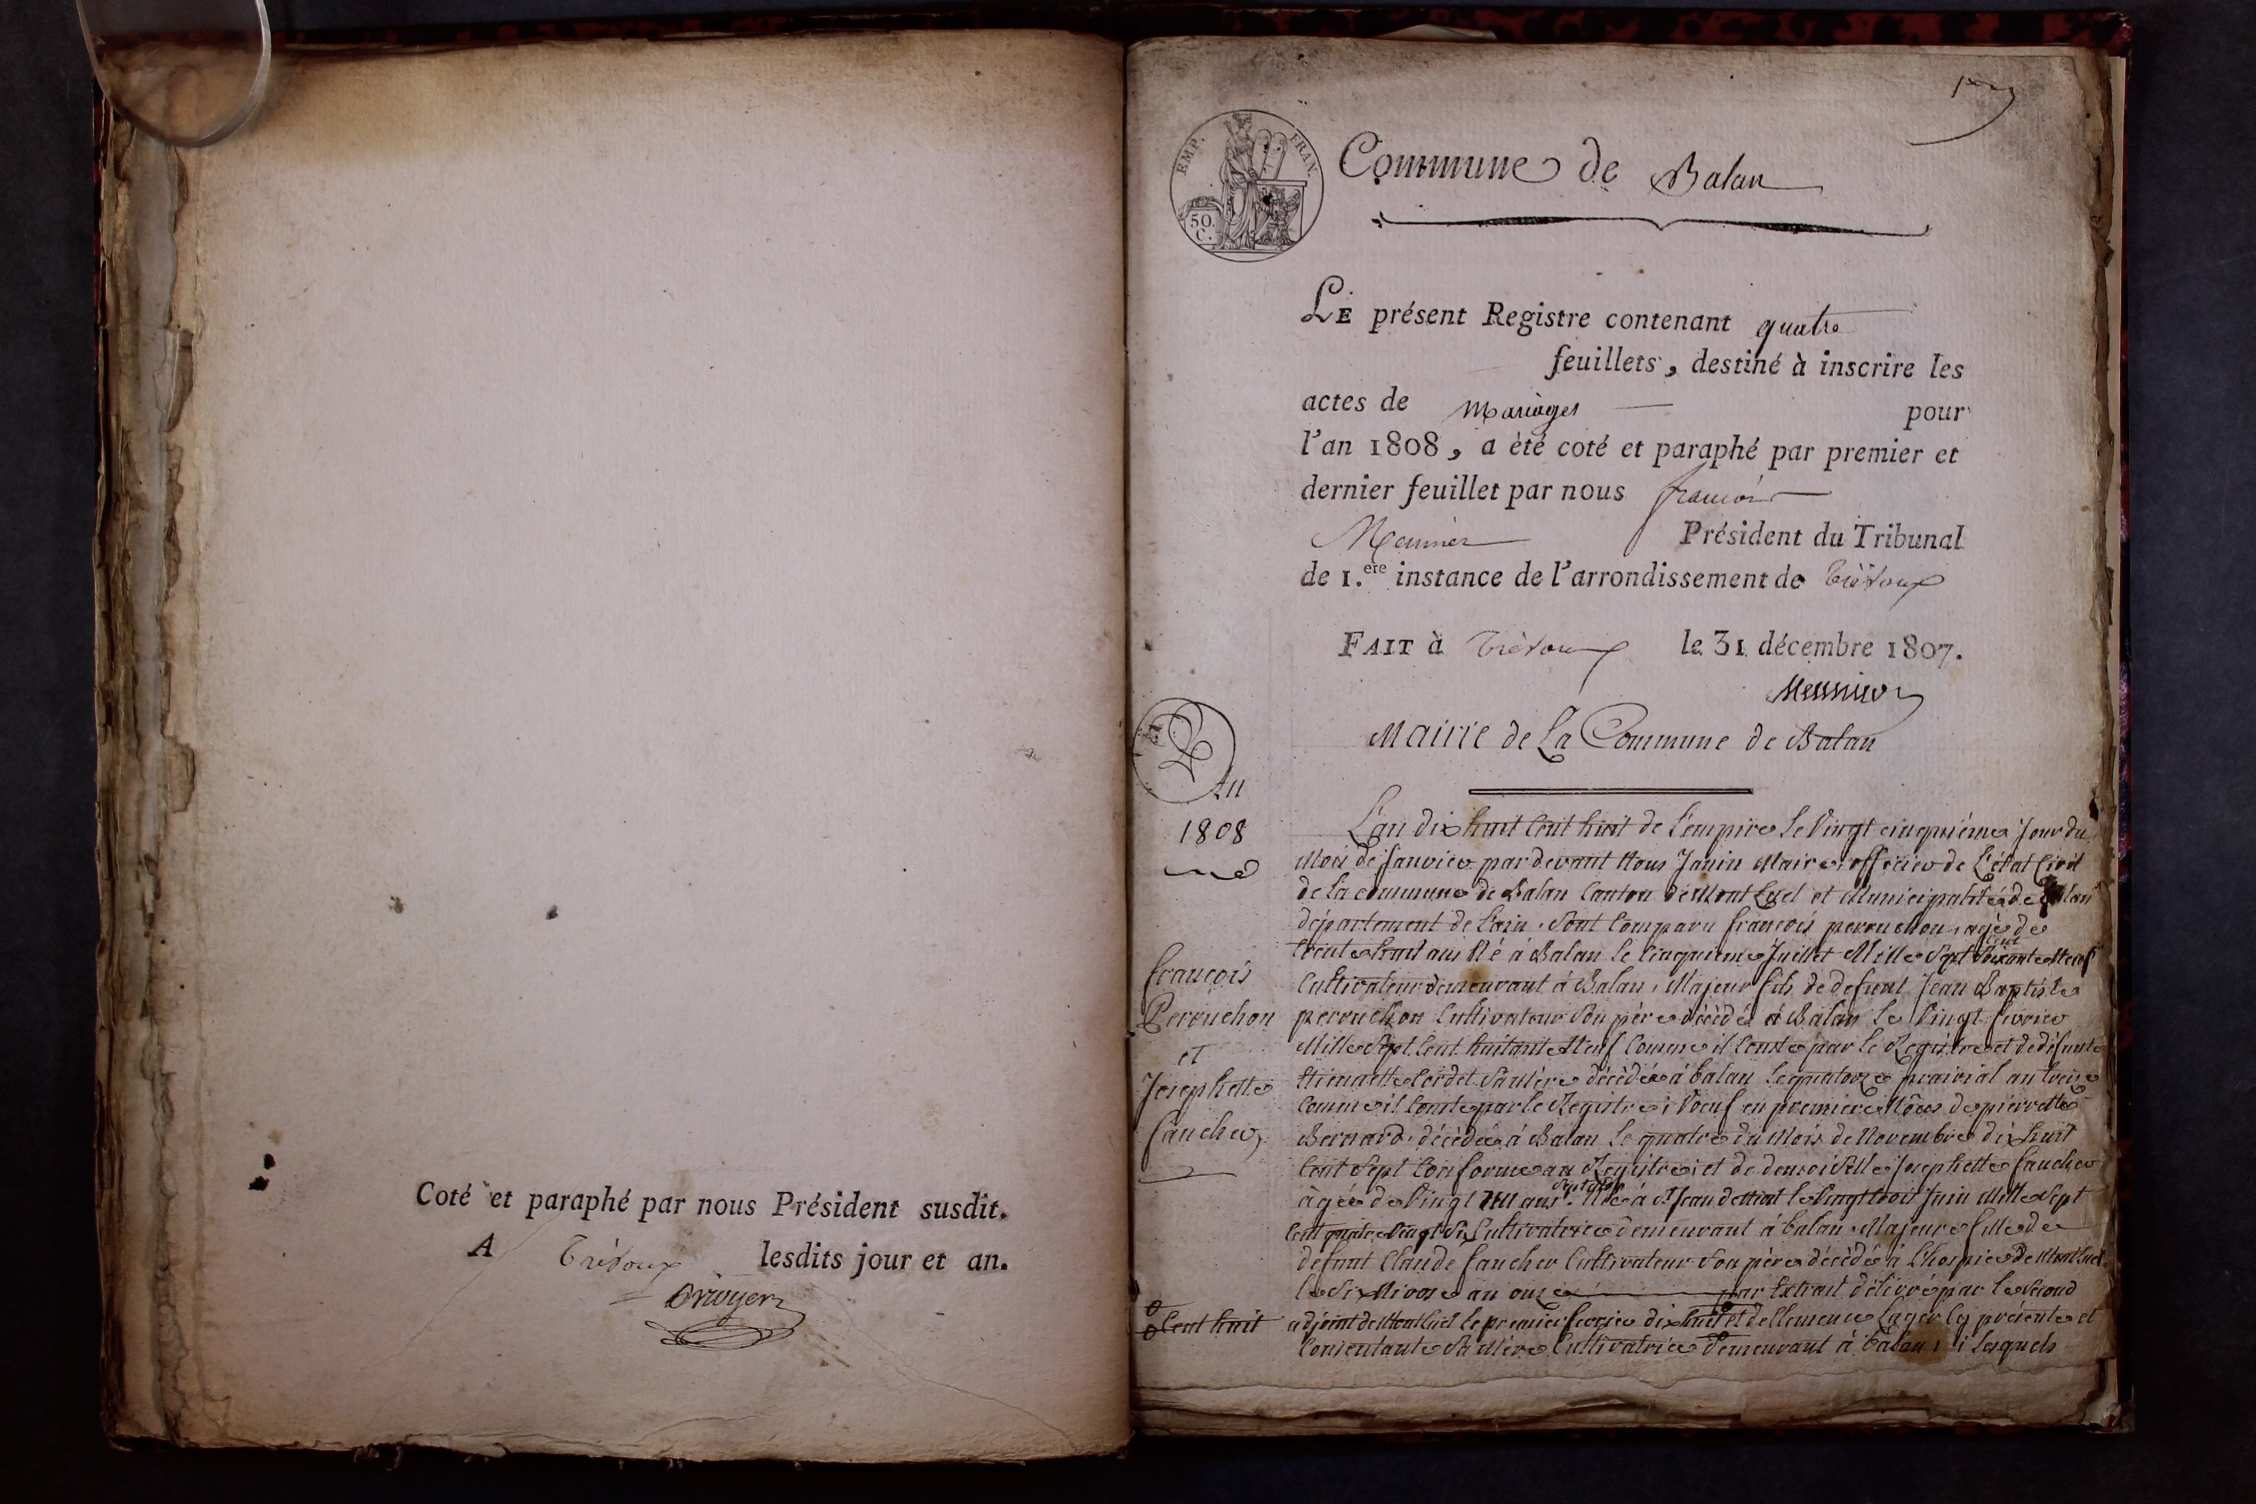 Coté et paraphé par nous Président susdit.
A Trévoux lesdits jour et an.
1er
EMP. FRAN.
50 C.
Commune de Balan
LE présent Registre contenant quatre
feuillets, destiné à inscrire les
actes de Mariages pour
l'an 1808, a été coté et paraphé par premier et
dernier feuillet par nous françois
Meunier Président du Tribunal
de 1.ere instance de l'arrondissement de Trévoux
FAIT à Trévoux le 31 décembre 1807.
Meunier
Mairie de La Commune de Balan
An
1808
L'an dix huit Cent huit de L'empire le Vingt cinquième Jour du
Mois de Janvier par devant Nous Janin Maire officier de L'état Civil
de la commune de Balan Canton de Mont Luel et Municipalité de Balan
département de L'ain, Sont Comparu françois perruchon agé de
trente huit ans Né à Balan le Cinquieme Juillet Mille Sept Cent Soixante Neuf
Cultivateur demeurant à Balan, Majeur fils de defunt Jean Baptiste
perruchon Cultivateur Son père décédé à Balan le Vingt fevrier
Mille Sept Cent huitante Neuf Comme il Conste par le Registre et de défunte
Etiennette Cordet Sa Mère décédée à balan le quatorze prairial an treize
Comme il Conste par le Registre; Veuf en premiere Nôces de pierrette
Bernard décédée à Balan le quatre du Mois de Novembre dix huit
Cent Sept Conforme au Registre; et de demoiselle Josephette faucher
âgée de Vingt un ans Née à St Jean de Niost le Vingt trois Juin Mille Sept
Cent quatre Vingt Six Cultivatrice demeurant à balan Majeure fille de
defunt Claude faucher Cultivateur Son père décédé à L'hospice de Montluel
le Six Nivose an onze par Extrait délivré par le Second
adjoint de Montluel le premier fevrier dix huit et de Clemence Lager Cy présente et
Consentante Sa Mère Cultivatrice demeurant à balan; Lesquels
François
Perruchon
et
Josephette
faucher
Cent huit